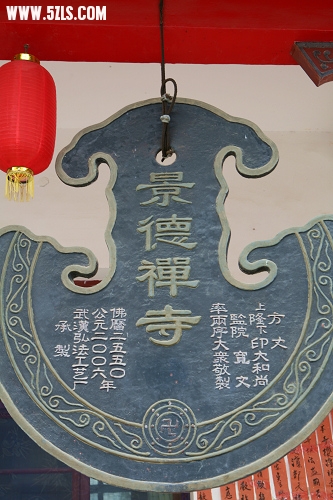 WWW.5ZLS.COM
景德禪寺
方丈
上隆下印大和尚
監院寬文
率兩序大衆敬製
佛曆二五五〇
公元二〇〇六年
武漢弘法工艺厂
承製